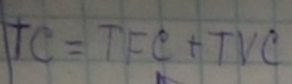 TC = TFC + TVC